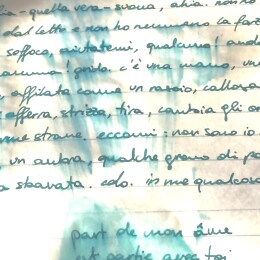 lia - quella vera - svoua, ahia. non ho
dal letto e non ho nemmeno la forza
soffoca, aiutatemi, qualcuno! aude
grido. c'è una mano, una
affilata come un rasoio, callosa
afferra, strizza, tira, cambia gli or
rme strane. eccomi: non sono io
un aubra, qualche grano di po
a sbavata. colo. in me qualcosa
part de mon âme
est partie avec toi